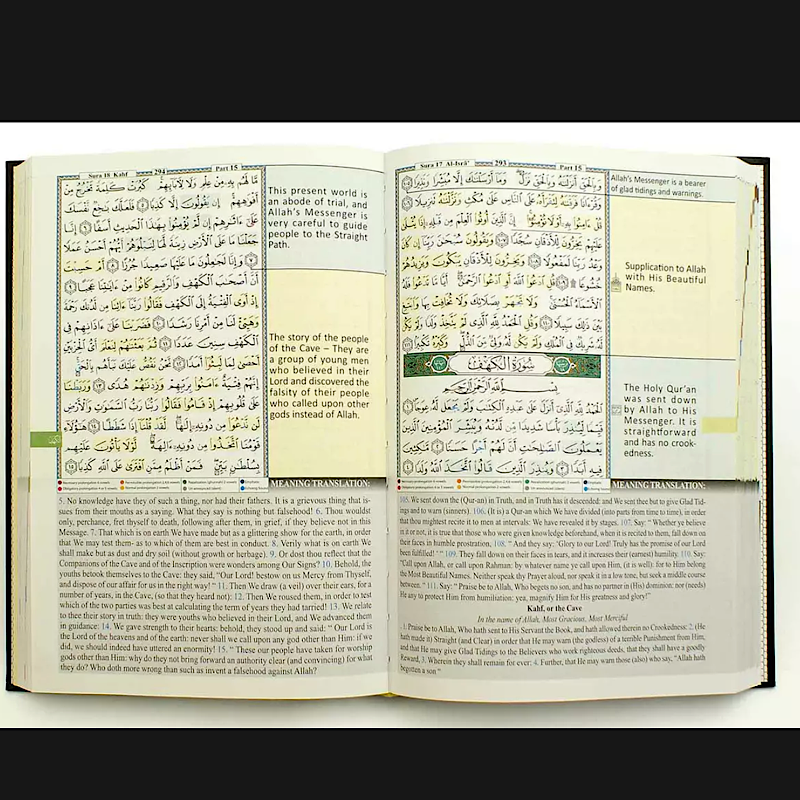 Sura 17 Al-Isrā' 293 Part 15
وَبِالْحَقِّ أَنزَلْنَاهُ وَبِالْحَقِّ نَزَلَ وَمَا أَرْسَلْنَاكَ إِلَّا مُبَشِّرًا وَنَذِيرًا ١٠٥
وَقُرْآنًا فَرَقْنَاهُ لِتَقْرَأَهُ عَلَى النَّاسِ عَلَى مُكْثٍ وَنَزَّلْنَاهُ تَنزِيلًا ١٠٦
قُلْ آمِنُوا بِهِ أَوْ لَا تُؤْمِنُوا إِنَّ الَّذِينَ أُوتُوا الْعِلْمَ مِن قَبْلِهِ إِذَا يُتْلَى
عَلَيْهِمْ يَخِرُّونَ لِلْأَذْقَانِ سُجَّدًا ١٠٧ وَيَقُولُونَ سُبْحَانَ رَبِّنَا إِن كَانَ
وَعْدُ رَبِّنَا لَمَفْعُولًا ١٠٨ وَيَخِرُّونَ لِلْأَذْقَانِ يَبْكُونَ وَيَزِيدُهُمْ
خُشُوعًا ١٠٩ قُلِ ادْعُوا اللَّهَ أَوِ ادْعُوا الرَّحْمَٰنَ أَيًّا مَّا تَدْعُوا فَلَهُ
الْأَسْمَاءُ الْحُسْنَى وَلَا تَجْهَرْ بِصَلَاتِكَ وَلَا تُخَافِتْ بِهَا وَابْتَغِ
بَيْنَ ذَٰلِكَ سَبِيلًا ١١٠ وَقُلِ الْحَمْدُ لِلَّهِ الَّذِي لَمْ يَتَّخِذْ وَلَدًا وَلَمْ يَكُن
لَّهُ شَرِيكٌ فِي الْمُلْكِ وَلَمْ يَكُن لَّهُ وَلِيٌّ مِّنَ الذُّلِّ وَكَبِّرْهُ تَكْبِيرًا ١١١
سُورَةُ الْكَهْفِ
بِسْمِ اللَّهِ الرَّحْمَٰنِ الرَّحِيمِ
الْحَمْدُ لِلَّهِ الَّذِي أَنزَلَ عَلَى عَبْدِهِ الْكِتَابَ وَلَمْ يَجْعَل لَّهُ عِوَجًا ١
قَيِّمًا لِّيُنذِرَ بَأْسًا شَدِيدًا مِّن لَّدُنْهُ وَيُبَشِّرَ الْمُؤْمِنِينَ الَّذِينَ
يَعْمَلُونَ الصَّالِحَاتِ أَنَّ لَهُمْ أَجْرًا حَسَنًا ٢ مَّاكِثِينَ
فِيهِ أَبَدًا ٣ وَيُنذِرَ الَّذِينَ قَالُوا اتَّخَذَ اللَّهُ وَلَدًا ٤
Allah's Messenger is a bearer
of glad tidings and warnings.
Supplication to Allah
with His Beautiful
Names.
The Holy Qur'an
was sent down
by Allah to His
Messenger. It is
straightforward
and has no crook-
edness.
MEANING TRANSLATION:
105. We sent down the (Qur-an) in Truth, and in Truth has it descended: and We sent thee but to give Glad Tid-
ings and to warn (sinners). 106. (It is) a Qur-an which We have divided (into parts from time to time), in order
that thou mightest recite it to men at intervals: We have revealed it by stages. 107. Say: " Whether ye believe
in it or not, it is true that those who were given knowledge beforehand, when it is recited to them, fall down on
their faces in humble prostration, 108. " And they say: 'Glory to our Lord! Truly has the promise of our Lord
been fulfilled!' " 109. They fall down on their faces in tears, and it increases their (earnest) humility. 110. Say:
"Call upon Allah, or call upon Rahman: by whatever name ye call upon Him, (it is well): for to Him belong
the Most Beautiful Names. Neither speak thy Prayer aloud, nor speak it in a low tone; but seek a middle course
between." 111. Say: " Praise be to Allah, Who begets no son, and has no partner in (His) dominion: nor (needs)
He any to protect Him from humiliation: yea, magnify Him for His greatness and glory!"
Kahf, or the Cave
In the name of Allah, Most Gracious, Most Merciful
1. Praise be to Allah, Who hath sent to His Servant the Book, and hath allowed therein no Crookedness: 2. (He
hath made it) Straight (and Clear) in order that He may warn (the godless) of a terrible Punishment from Him,
and that He may give Glad Tidings to the Believers who work righteous deeds, that they shall have a goodly
Reward, 3. Wherein they shall remain for ever: 4. Further, that He may warn those (also) who say, "Allah hath
begotten a son"
Sura 18 Kahf 294 Part 15
مَّا لَهُم بِهِ مِنْ عِلْمٍ وَلَا لِآبَائِهِمْ كَبُرَتْ كَلِمَةً تَخْرُجُ مِنْ
أَفْوَاهِهِمْ إِن يَقُولُونَ إِلَّا كَذِبًا ٥ فَلَعَلَّكَ بَاخِعٌ نَّفْسَكَ
عَلَى آثَارِهِمْ إِن لَّمْ يُؤْمِنُوا بِهَٰذَا الْحَدِيثِ أَسَفًا ٦ إِنَّا
جَعَلْنَا مَا عَلَى الْأَرْضِ زِينَةً لَّهَا لِنَبْلُوَهُمْ أَيُّهُمْ أَحْسَنُ عَمَلًا ٧
وَإِنَّا لَجَاعِلُونَ مَا عَلَيْهَا صَعِيدًا جُرُزًا ٨ أَمْ حَسِبْتَ
أَنَّ أَصْحَابَ الْكَهْفِ وَالرَّقِيمِ كَانُوا مِنْ آيَاتِنَا عَجَبًا ٩
إِذْ أَوَى الْفِتْيَةُ إِلَى الْكَهْفِ فَقَالُوا رَبَّنَا آتِنَا مِن لَّدُنكَ رَحْمَةً
وَهَيِّئْ لَنَا مِنْ أَمْرِنَا رَشَدًا ١٠ فَضَرَبْنَا عَلَى آذَانِهِمْ فِي
الْكَهْفِ سِنِينَ عَدَدًا ١١ ثُمَّ بَعَثْنَاهُمْ لِنَعْلَمَ أَيُّ الْحِزْبَيْنِ
أَحْصَى لِمَا لَبِثُوا أَمَدًا ١٢ نَّحْنُ نَقُصُّ عَلَيْكَ نَبَأَهُم بِالْحَقِّ
إِنَّهُمْ فِتْيَةٌ آمَنُوا بِرَبِّهِمْ وَزِدْنَاهُمْ هُدًى ١٣ وَرَبَطْنَا
عَلَى قُلُوبِهِمْ إِذْ قَامُوا فَقَالُوا رَبُّنَا رَبُّ السَّمَاوَاتِ وَالْأَرْضِ
لَن نَّدْعُوَ مِن دُونِهِ إِلَٰهًا لَّقَدْ قُلْنَا إِذًا شَطَطًا ١٤ هَٰؤُلَاءِ
قَوْمُنَا اتَّخَذُوا مِن دُونِهِ آلِهَةً لَّوْلَا يَأْتُونَ عَلَيْهِم
بِسُلْطَانٍ بَيِّنٍ فَمَنْ أَظْلَمُ مِمَّنِ افْتَرَى عَلَى اللَّهِ كَذِبًا ١٥
This present world is
an abode of trial, and
Allah's Messenger is
very careful to guide
people to the Straight
Path.
The story of the people
of the Cave – They are
a group of young men
who believed in their
Lord and discovered the
falsity of their people
who called upon other
gods instead of Allah.
MEANING TRANSLATION:
5. No knowledge have they of such a thing, nor had their fathers. It is a grievous thing that is-
sues from their mouths as a saying. What they say is nothing but falsehood! 6. Thou wouldst
only, perchance, fret thyself to death, following after them, in grief, if they believe not in this
Message. 7. That which is on earth We have made but as a glittering show for the earth, in order
that We may test them- as to which of them are best in conduct. 8. Verily what is on earth We
shall make but as dust and dry soil (without growth or herbage). 9. Or dost thou reflect that the
Companions of the Cave and of the Inscription were wonders among Our Signs? 10. Behold, the
youths betook themselves to the Cave: they said, "Our Lord! bestow on us Mercy from Thyself,
and dispose of our affair for us in the right way!" 11. Then We draw (a veil) over their ears, for a
number of years, in the Cave, (so that they heard not): 12. Then We roused them, in order to test
which of the two parties was best at calculating the term of years they had tarried! 13. We relate
to thee their story in truth: they were youths who believed in their Lord, and We advanced them
in guidance: 14. We gave strength to their hearts: behold, they stood up and said: " Our Lord is
the Lord of the heavens and of the earth: never shall we call upon any god other than Him: if we
did, we should indeed have uttered an enormity! 15. " These our people have taken for worship
gods other than Him: why do they not bring forward an authority clear (and convincing) for what
they do? Who doth more wrong than such as invent a falsehood against Allah?